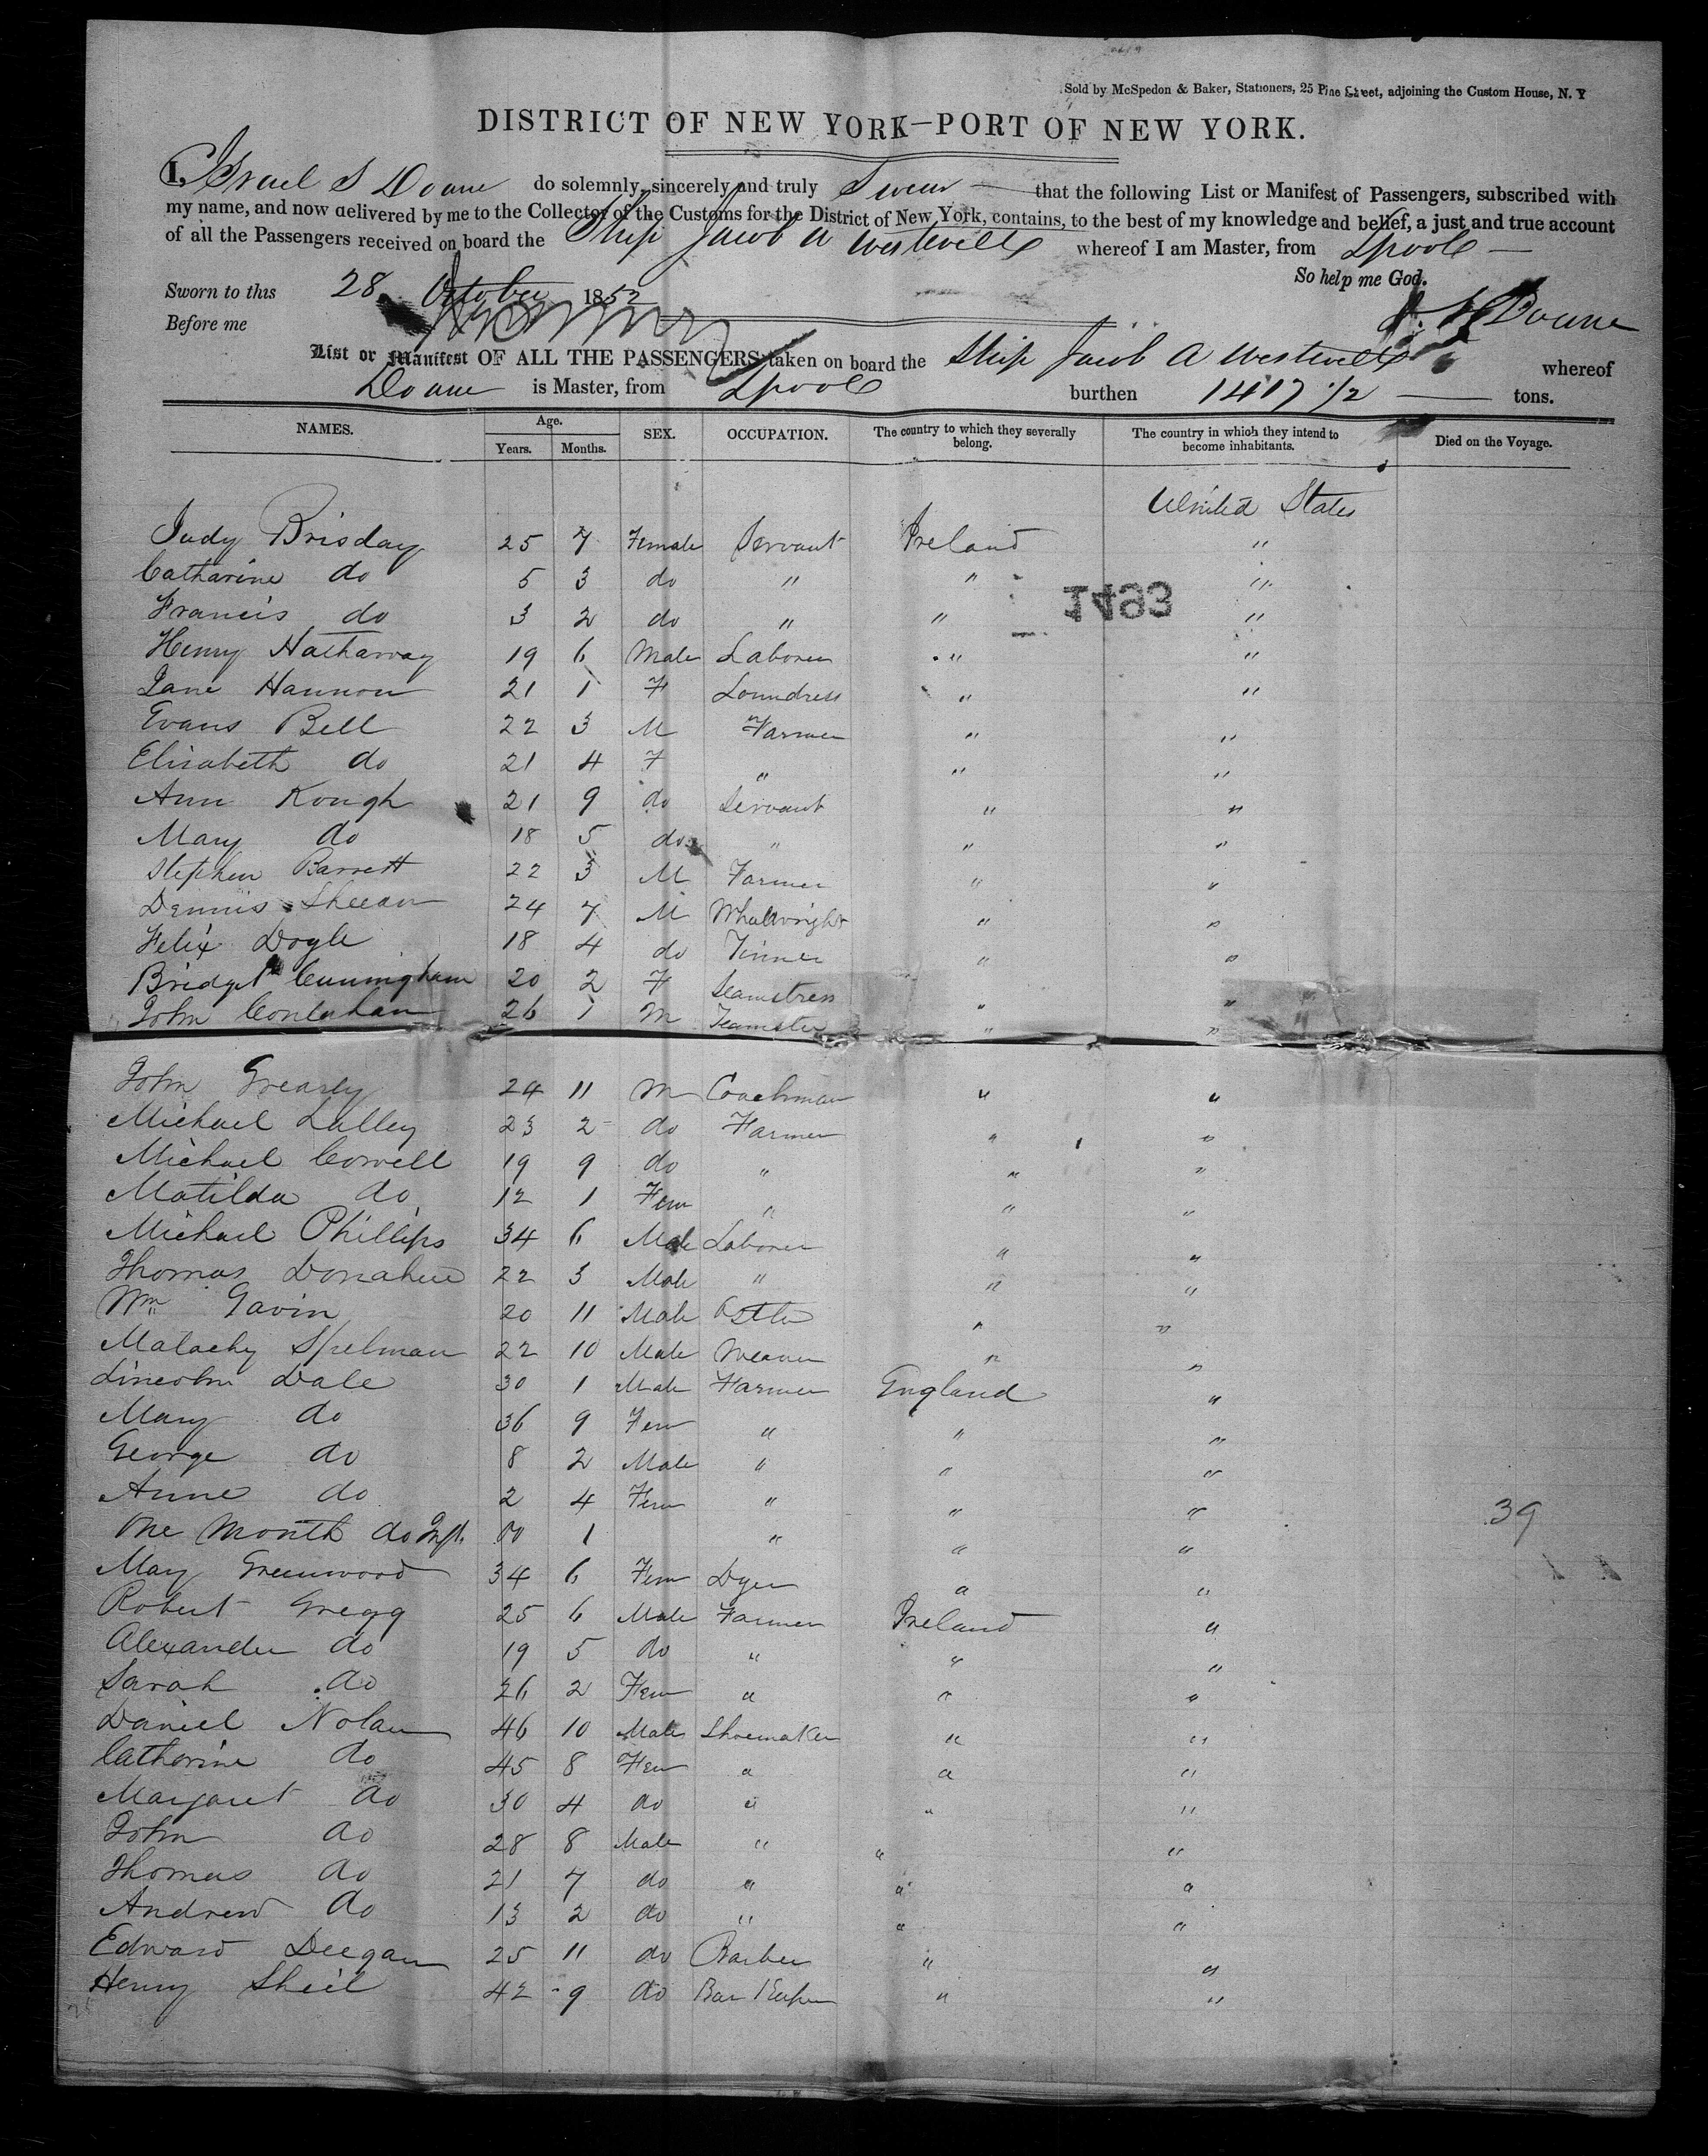 Sold by McSpedon & Baker, Stationers, 25 Pine Street, adjoining the Custom House, N. Y
DISTRICT OF NEW YORK—PORT OF NEW YORK.
I, Israel S Doane do solemnly, sincerely and truly Swear — that the following List or Manifest of Passengers, subscribed with
my name, and now delivered by me to the Collector of the Customs for the District of New York, contains, to the best of my knowledge and belief, a just and true account
of all the Passengers received on board the Ship Jacob A Westervelt whereof I am Master, from Lpool —
So help me God.
Sworn to this 28 October 1852
Before me
Doane
List or Manifest OF ALL THE PASSENGERS taken on board the Ship Jacob A Westervelt whereof
Doane is Master, from Lpool burthen 1417 1/2 — tons.
NAMES. Age. Years. Months. SEX. OCCUPATION. The country to which they severally belong. The country in which they intend to become inhabitants. Died on the Voyage.
United States
Judy Brisday 25 7 Female Servant Ireland "
Catharine do 5 3 do " " "
1493
Francis do 3 2 do " " "
Henry Hatharway 19 6 Male Laborer " "
Jane Hannon 21 1 F Loundress " "
Evans Bell 22 3 M Farmer " "
Elisabeth do 21 4 F " " "
Ann Kough 21 9 do Servant " "
Mary do 18 5 do " " "
Stephen Barrett 22 3 M Farmer " "
Dennis Sheean 24 7 M Whelwright " "
Felix Doyle 18 4 do Tinner " "
Bridget Cunningham 20 2 F Seamstress " "
John Conlahan 26 1 M Teamster " "
John Grearly 24 11 M Coachman " "
Michael Lalley 23 2 do Farmer " "
Michael Cowell 19 9 do " " "
Matilda do 12 1 Fem " " "
Michael Phillips 34 6 Male Laborer " "
Thomas Donahue 22 3 Male " " "
Wm Gavin 20 11 Male Ostler " "
Malachy Spelman 22 10 Male Weaver " "
Lincoln Dale 30 1 Male Farmer England "
Mary do 36 9 Fem " " "
George do 8 2 Male " " "
Anne do 2 4 Fem " " "
39
One Month do Inft 00 1 " " "
Mary Greenwood 34 6 Fem Dyer " "
Robert Gregg 25 6 Male Farmer Ireland "
Alexander do 19 5 do " " "
Sarah do 26 2 Fem " " "
Daniel Nolan 46 10 Male Shoemaker " "
Catherine do 45 8 Fem " " "
Margaret do 30 4 do " " "
John do 28 8 Male " " "
Thomas do 21 7 do " " "
Andrew do 13 2 do " " "
Edward Deegan 25 11 do Barber " "
Henry Sheil 42 9 do Bar Keeper " "